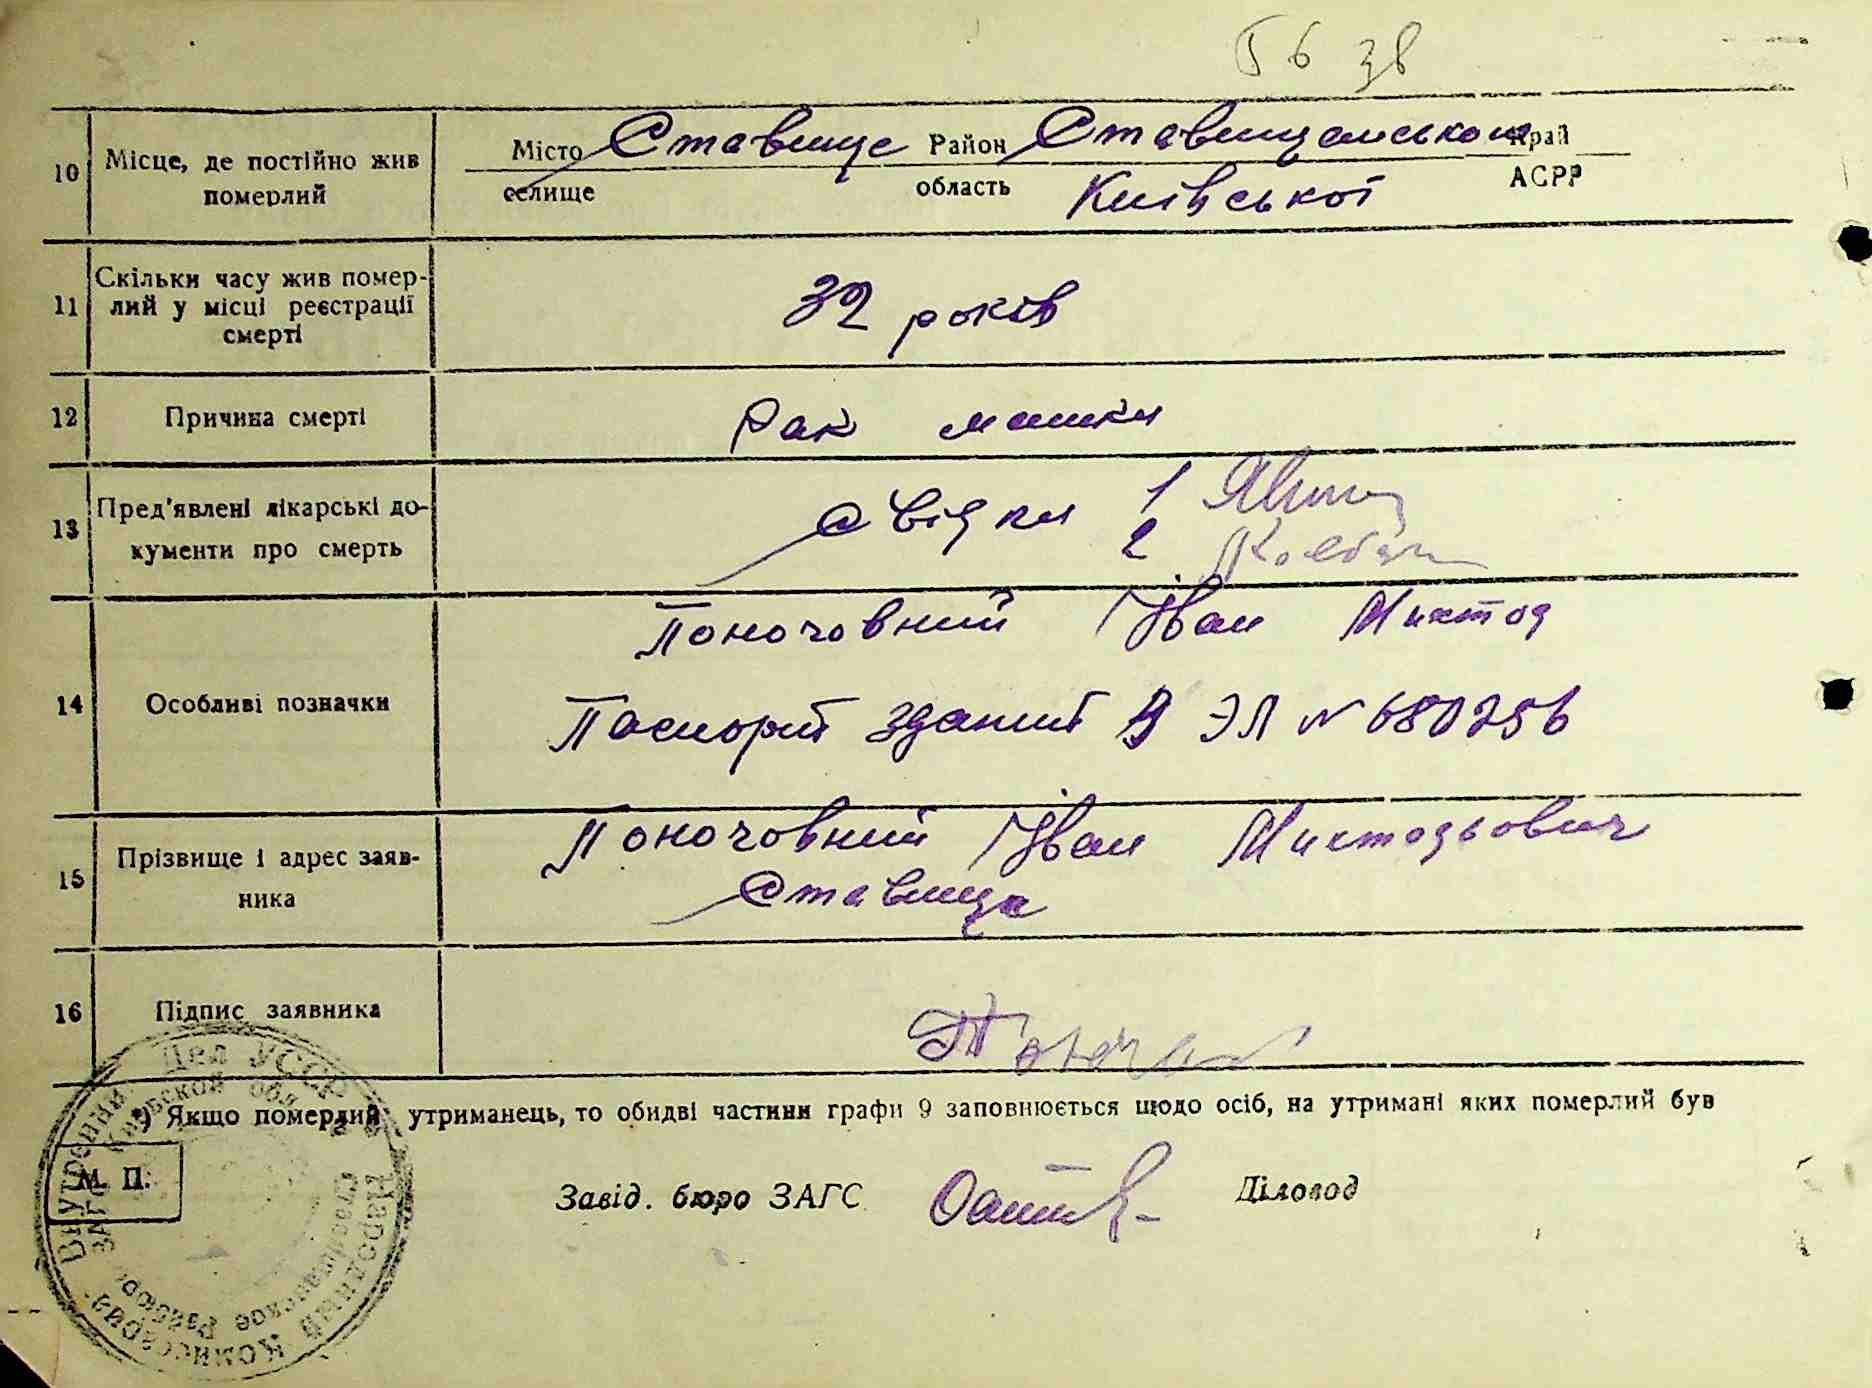 10 Місце, де постійно жив
померлий
Місто Ставище Район Ставищанського Край
селище область Київської АСРР
11 Скільки часу жив помер-
лий у місці реєстрації
смерті
32 років
12 Причина смерті
Рак матки
13 Пред'явлені лікарські до-
кументи про смерть
Свідки 1
2
14 Особливі позначки
Поночовний Іван Миктод
Паспорт зданий ЭЛ № 680256
15 Прізвище і адрес заяв-
ника
Поночовний Іван Миктодьович
Ставища
16 Підпис заявника
*) Якщо померлий утриманець, то обидві частини графи 9 заповнюється щодо осіб, на утримані яких померлий був
М. П.
Завід. бюро ЗАГС Діловод
Народный Комиссариат Внутренних Дел УССР
ЗАГС Киевской обл. Ставищанское Райбюро